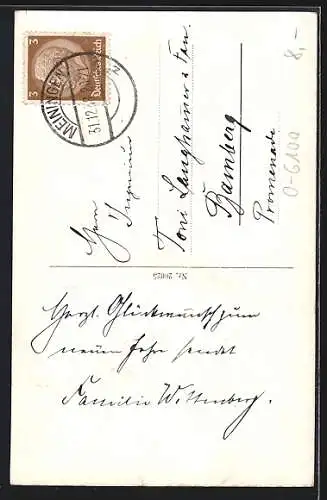 3 3
Deutsches Reich
MEININGEN
31.12.
Herrn
Ingenieur
Toni Langhammer u. Frau
Bamberg
Promenade
8,-
O-6100
Nr. 2002S
Herzl. Glückwunsch zum
neuen Jahr sendet
Familie Wittenberg.